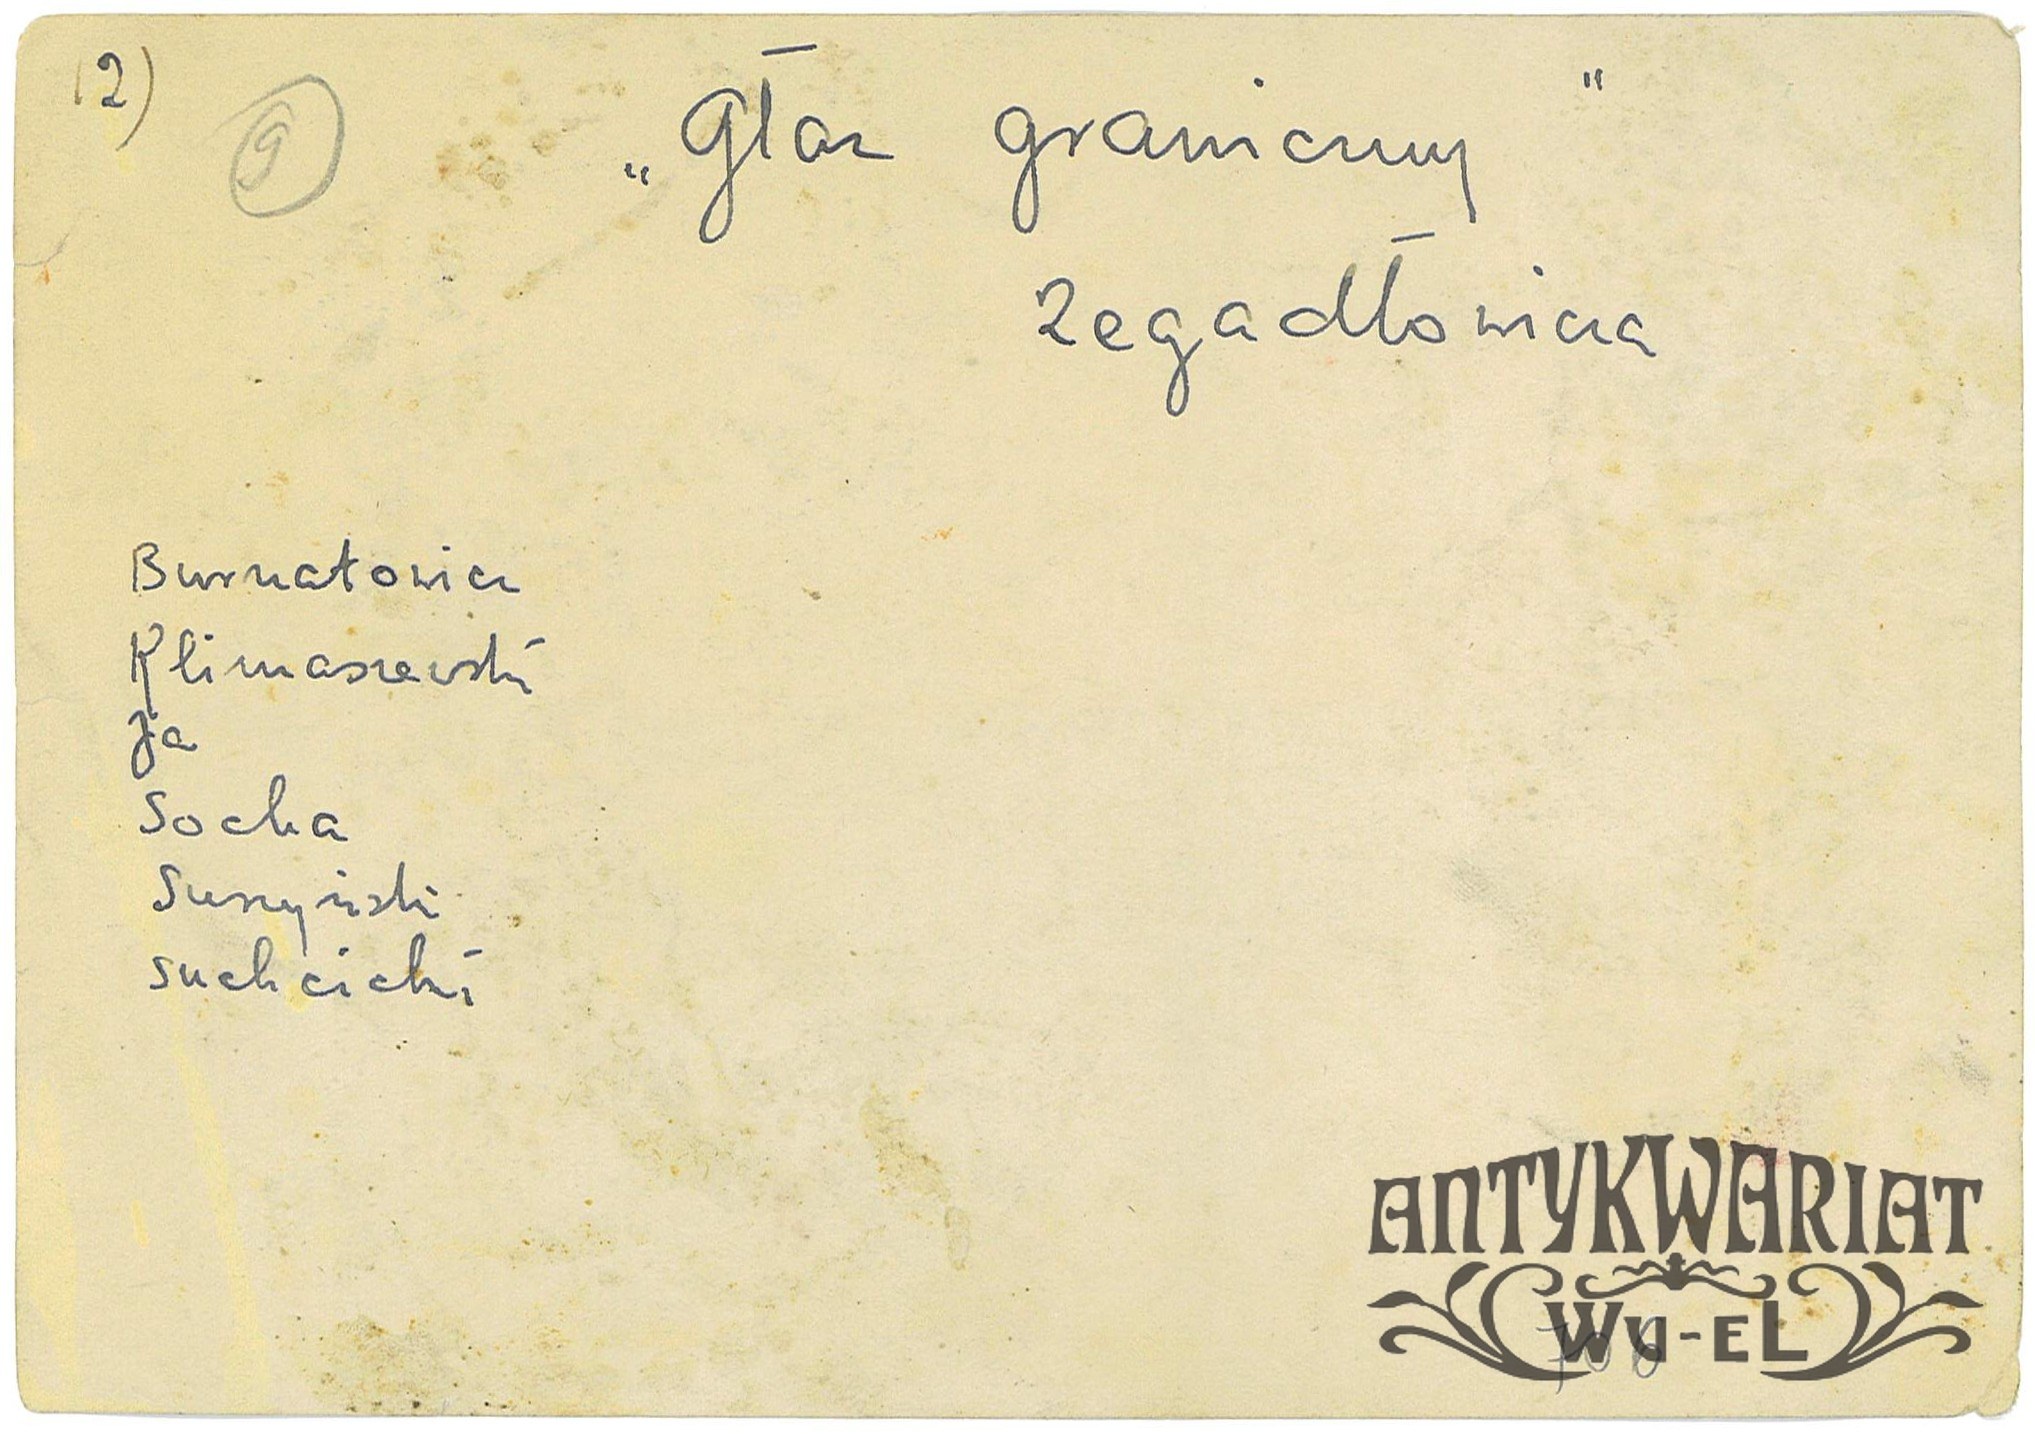 2)
9
„Głaz graniczny"
Zegadłowicza
Burnatowicz
Klimaszewski
Ja
Socha
Suszyński
Suchcicki
ANTYKWARIAT
WU-EL